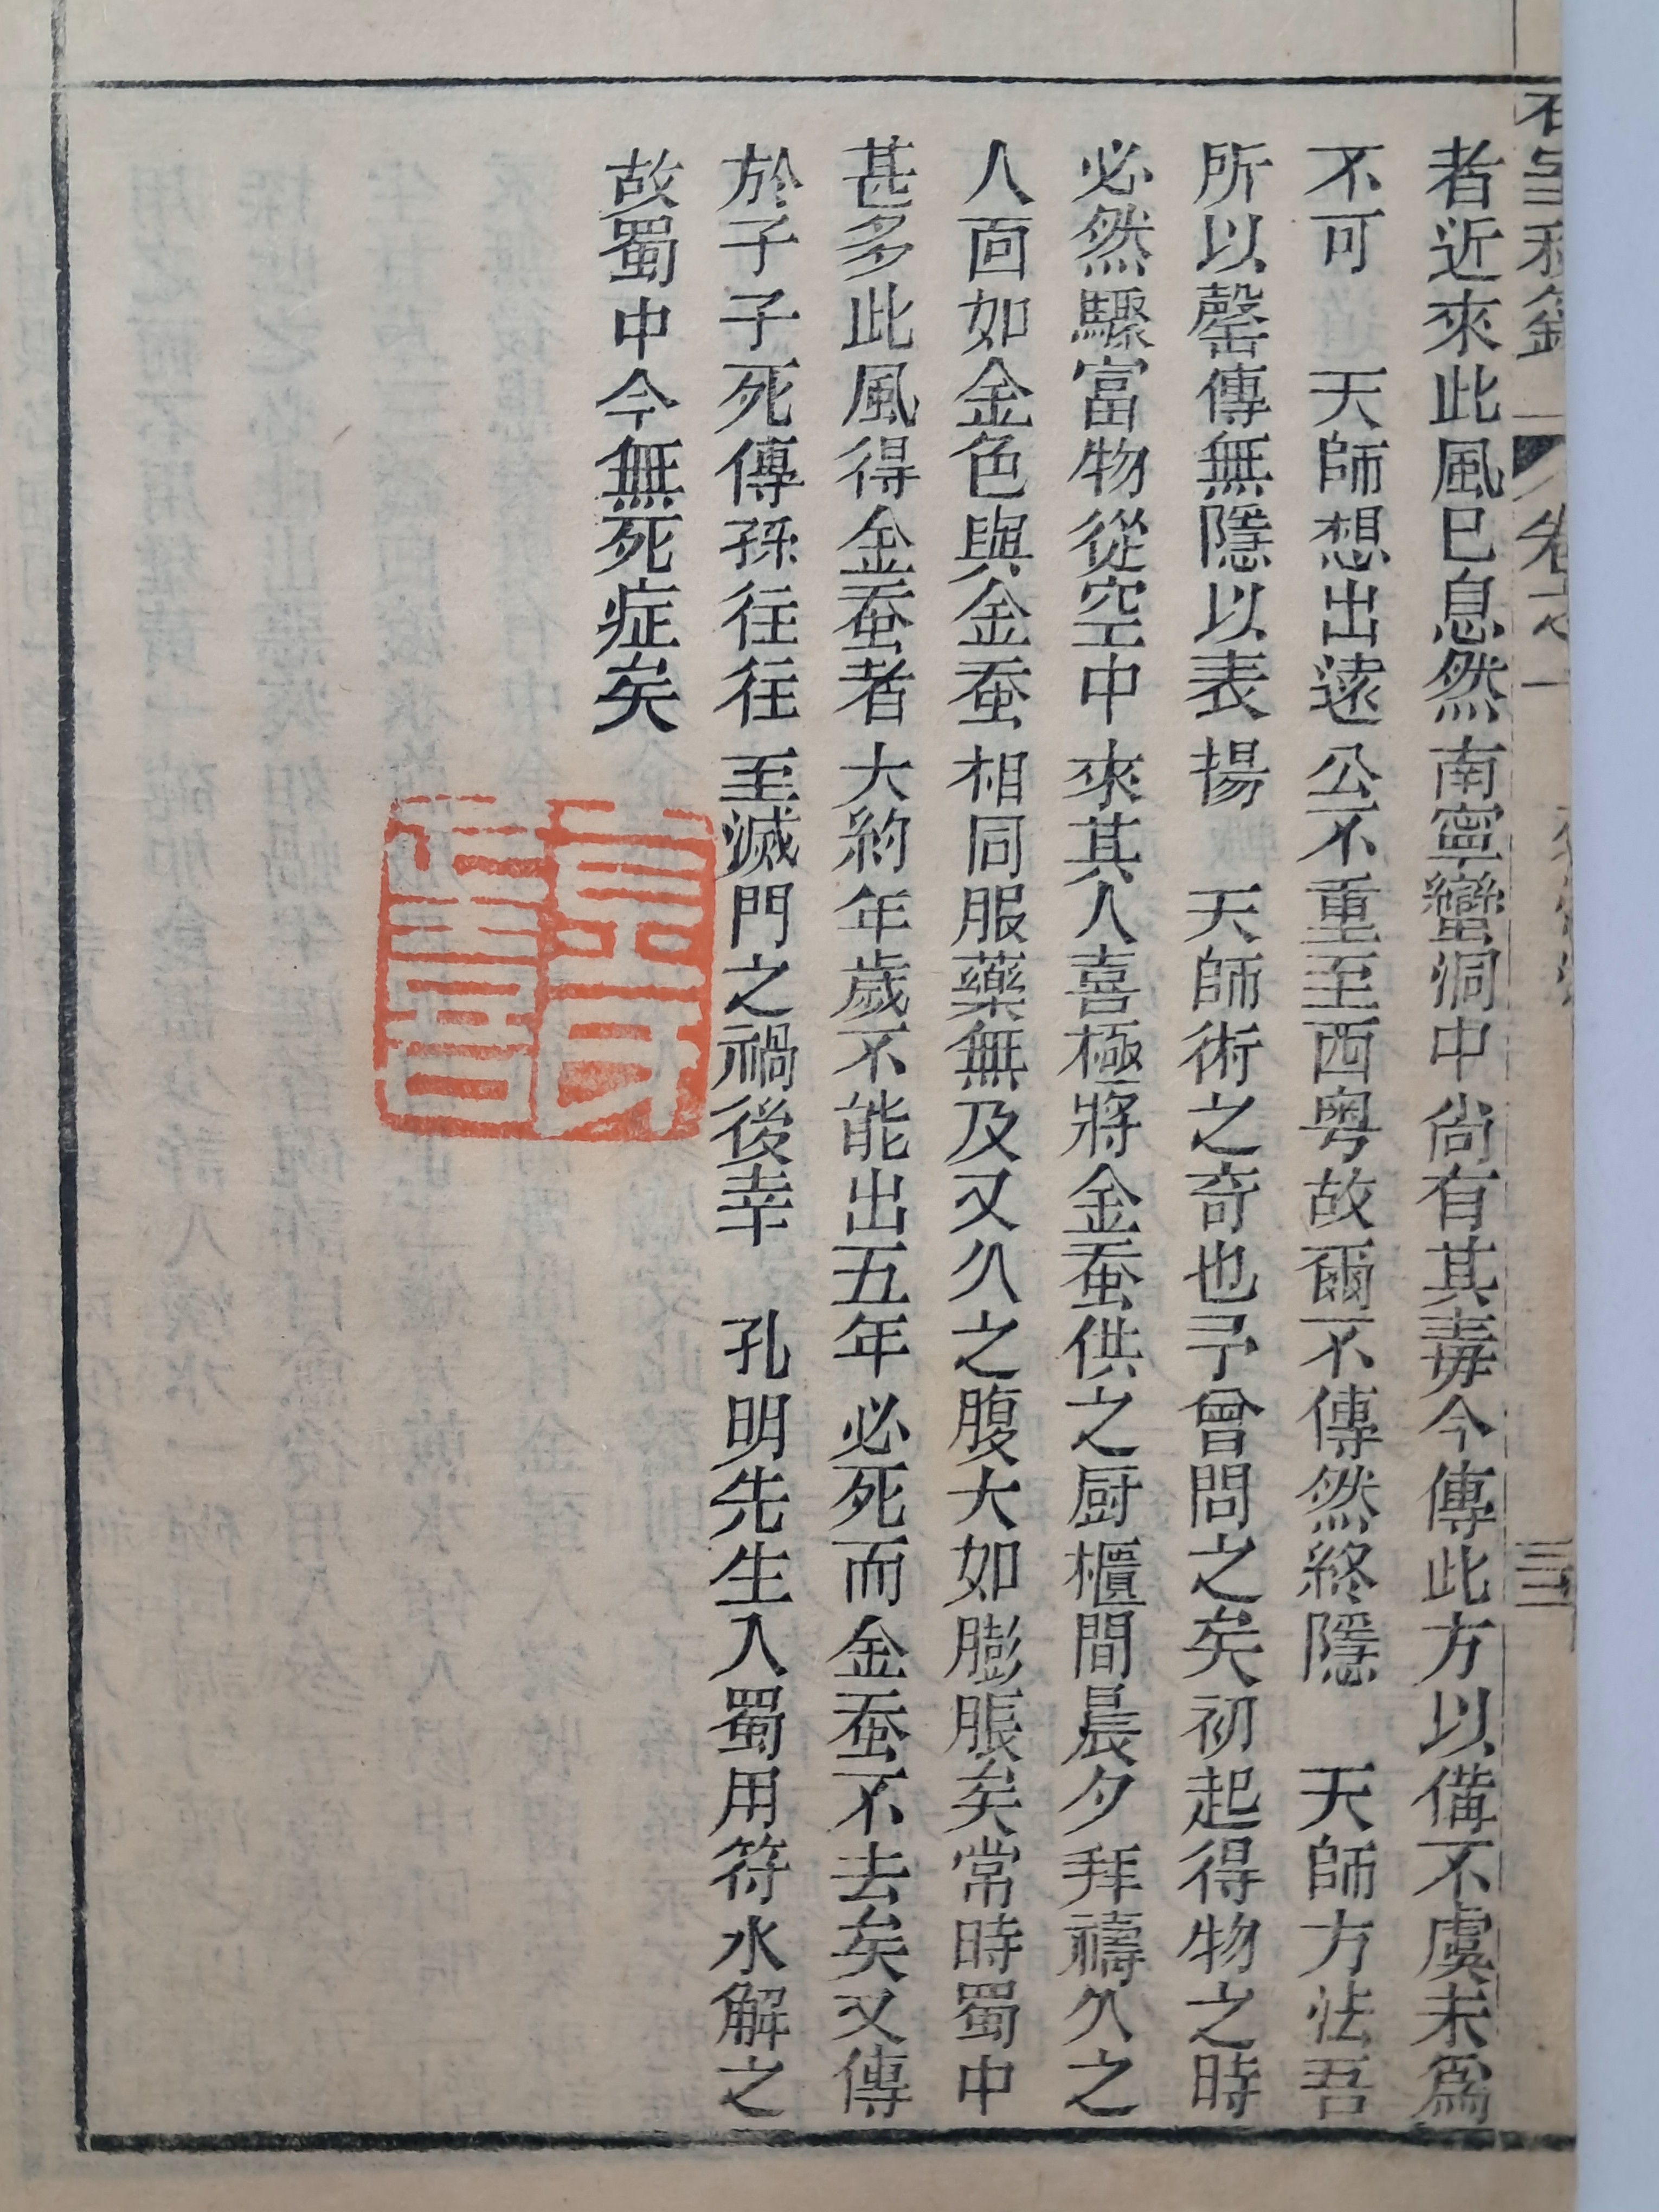 者近來此風已息然南寧蠻洞中尙有其毒今傳此方以備不虞未爲
不可 天師想出遠公不重至西粤故爾不傳然終隱 天師方法吾
所以罄傳無隱以表揚 天師術之奇也予曾問之矣初起得物之時
必然驟富物從空中來其人喜極將金蚕供之厨櫃間晨夕拜禱久之
人面如金色與金蚕相同服藥無及又久之腹大如膨脹矣常時蜀中
甚多此風得金蚕者大約年歲不能出五年必死而金蚕不去矣又傳
於子子死傳孫往往至滅門之禍後幸 孔明先生入蜀用符水解之
故蜀中今無死症矣